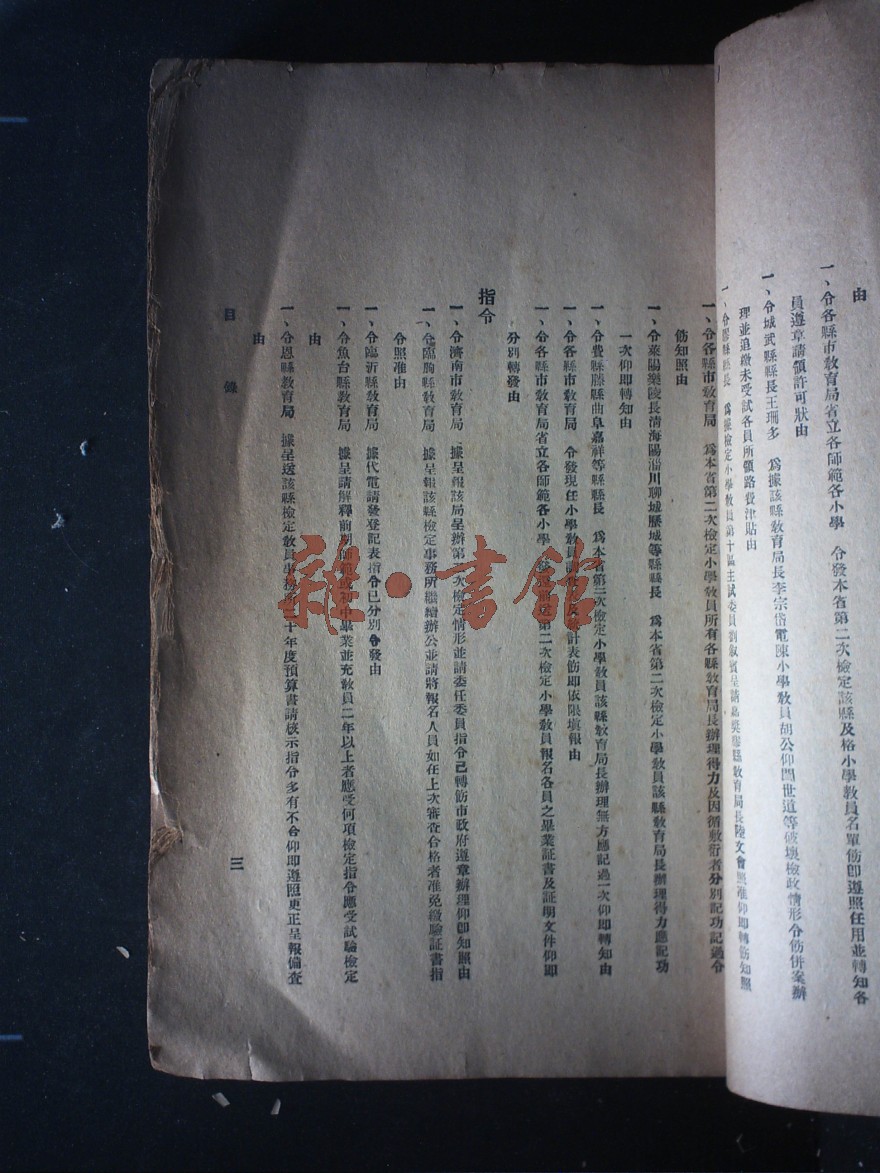 由
一、令各縣市敎育局省立各師範各小學　令發本省第二次檢定該縣及格小學敎員名單飭卽遵照任用並轉知各
員遵章請領許可狀由
一、令城武縣縣長王珊多　爲據該縣敎育局長李宗岱電陳小學敎員胡公仰閻世道等破壞檢政情形令飭併案辦
理並追繳未受試各員所領路費津貼由
一、令縣縣長　爲檢定小學敎員第十區主試委員劉叙賓呈請縣敎育局長陸文會照准仰卽轉飭知照
一、令各縣市敎育局　爲本省第二次檢定小學敎員所有各縣敎育局長辦理得力及因循敷衍者分別記功記過令
飭知照由
一、令萊陽樂陵長清海陽淄川聊城歷城等縣縣長　爲本省第二次檢定小學敎員該縣敎育局長辦理得力應記功
一次仰卽轉知由
一、令費縣滕縣曲阜嘉祥等縣縣長　爲本省第二次檢定小學敎員該縣敎育局長辦理無方應記過一次仰卽轉知由
一、令各縣市敎育局　令發現任小學敎員調計表飭卽依限塡報由
一、令各縣市敎育局省立各師範各小學　第二次檢定小學敎員報名各員之畢業証書及証明文件仰卽
分別轉發由
指令
一、令濟南市敎育局　據呈報該局呈辦第次檢定情形並請委任委員指令已轉飭市政府遵章辦理仰卽知照由
一、令臨朐縣敎育局　據呈報該縣檢定事務所繼續辦公並請將報名人員如在上次審查合格者准免繳驗証書指
令照准由
一、令臨沂縣敎育局　據代電請發登記表指令已分別令發由
一、令魚台縣敎育局　據呈請解釋前期師範或初中畢業並充敎員二年以上者應受何項檢定指令應受試驗檢定
由
一、令恩縣敎育局　據呈送該縣檢定敎員事務所二十年度預算書請核示指令多有不合仰卽遵照更正呈報備查
由
目錄
三
雜·書館